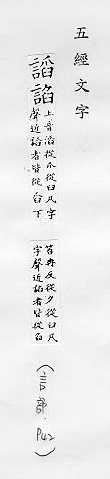 五經文字
謟諂
上音滔從爪從臼凡字
聲近謟者皆從臽下
丑冉反從夕從臼凡
字聲近諂者皆從臽
(言部. P42)